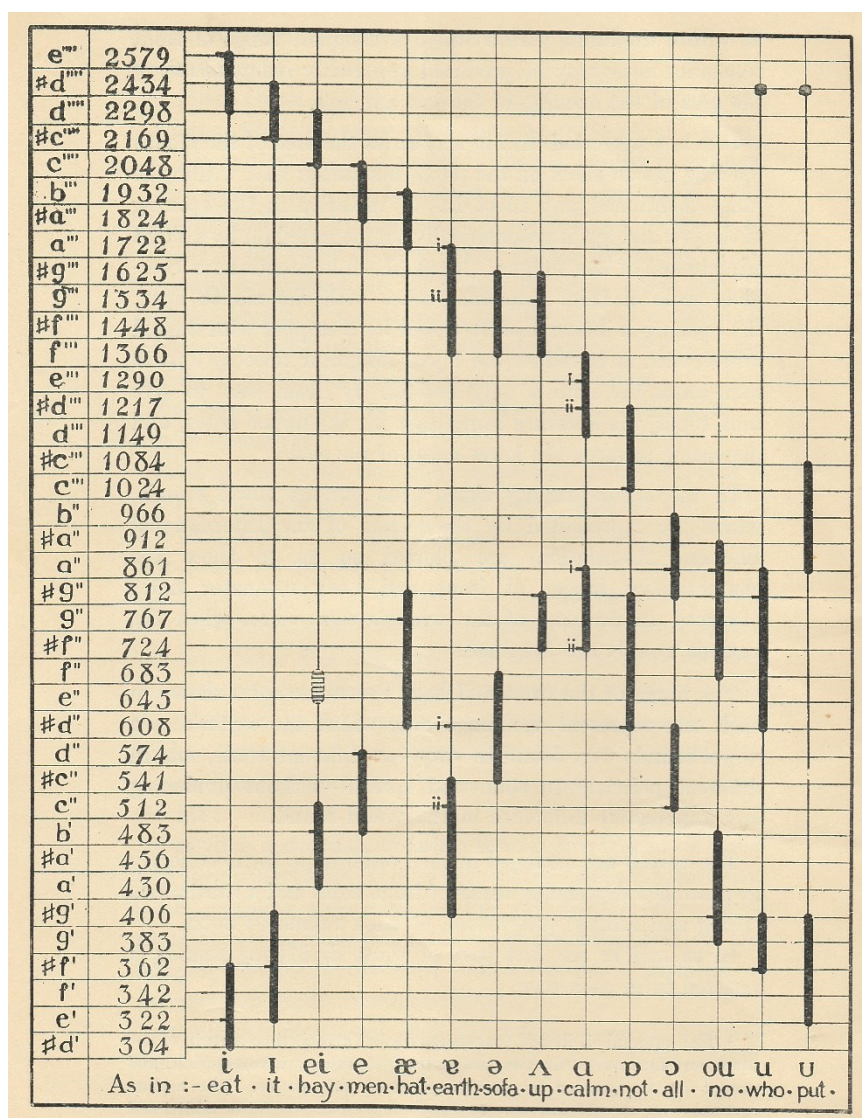 e'''' 2579
#d'''' 2434
d'''' 2298
#c'''' 2169
c'''' 2048
b''' 1932
#a''' 1824
a''' 1722
i
#g''' 1625
g''' 1534
ii
#f''' 1448
f''' 1366
e''' 1290
i
#d''' 1217
ii
d''' 1149
#c''' 1084
c''' 1024
b'' 966
#a'' 912
a'' 861
i
#g'' 812
g'' 767
#f'' 724
ii
f'' 683
e'' 645
#d'' 608
i
d'' 574
#c'' 541
c'' 512
ii
b' 483
#a' 456
a' 430
#g' 406
g' 383
#f' 362
f' 342
e' 322
#d' 304
i ɪ ei e æ ɐ ə ʌ ɑ ɒ ɔ ou u ʊ
As in :- eat · it · hay · men · hat · earth · sofa · up · calm · not · all · no · who · put ·